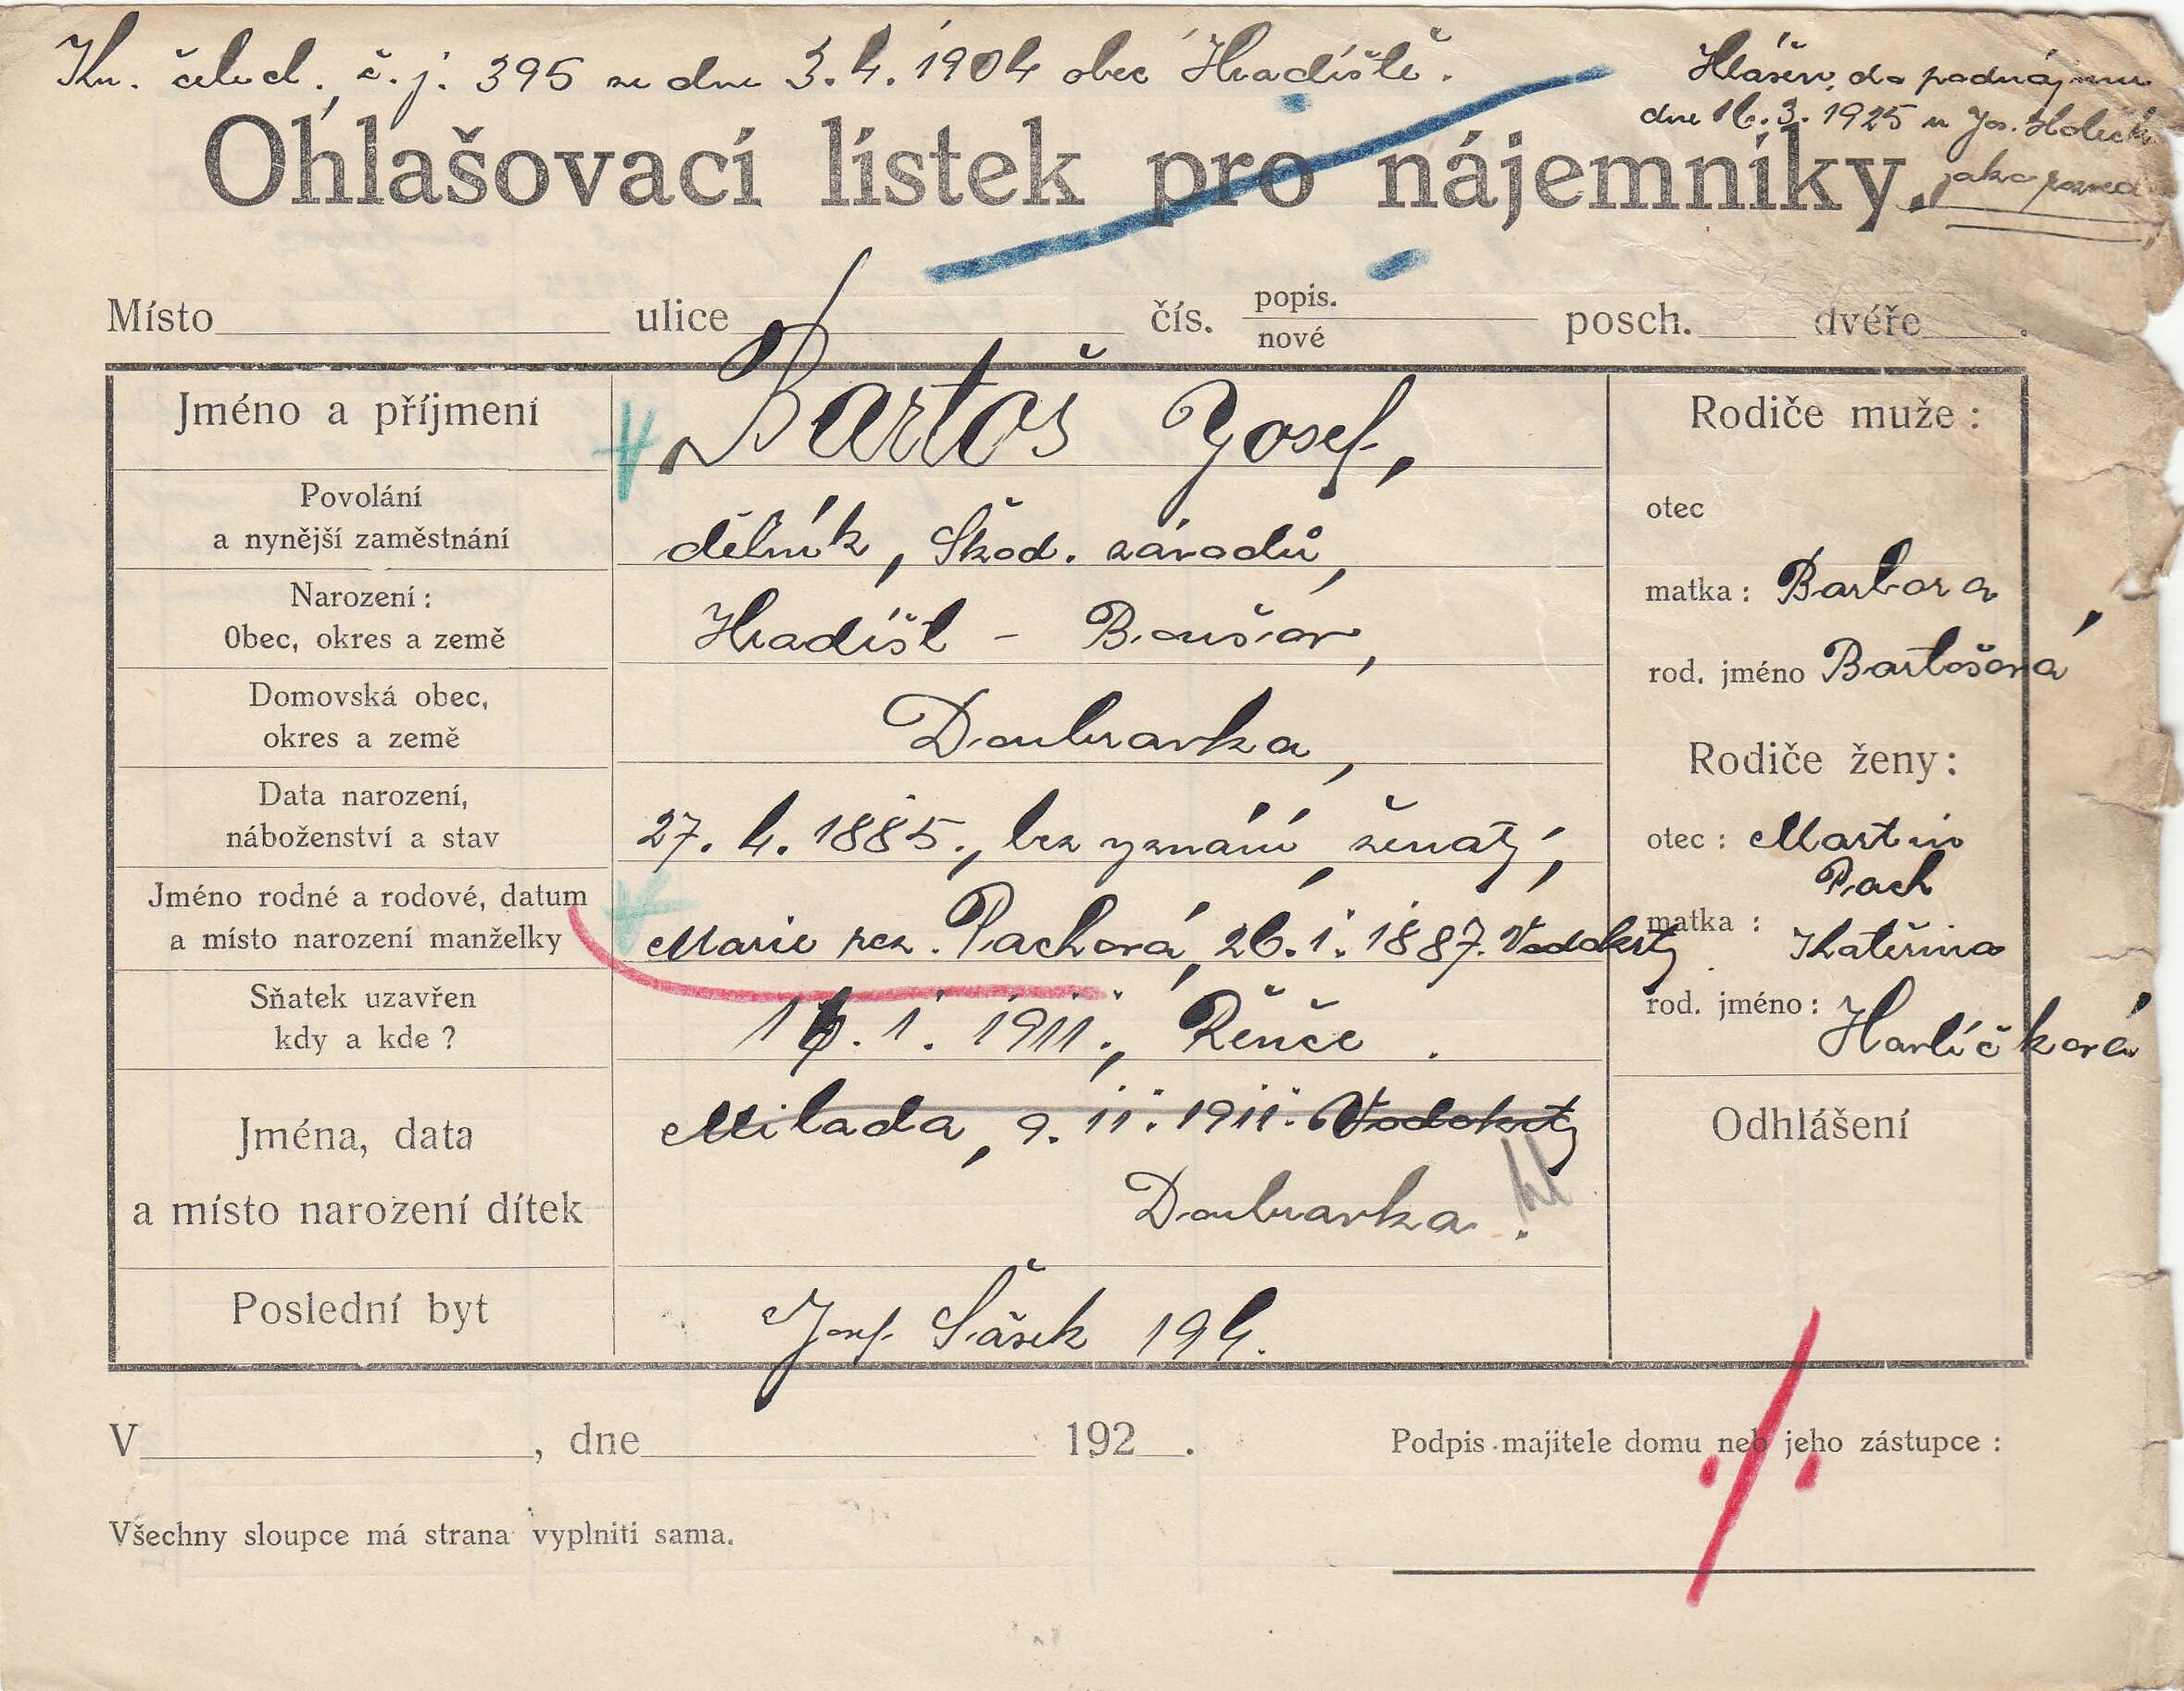 Kn. čeled. č. j. 395 ze dne 3. 4. 1904 obec Hradiště.
Hlášen do podnájmu
dne 16. 3. 1925 u Jos.
jako
Ohlašovací lístek pro nájemníky.
Místo ulice čís. popis. nové posch. dvéře .
Jméno a příjmení Bartoš Josef,
Rodiče muže :
Povolání
a nynější zaměstnání dělník, Škod. závodů,
otec
Narození :
Obec, okres a země Hradišt -
matka : Barbora,
rod. jméno Bartošová
Domovská obec,
okres a země Doubravka,
Rodiče ženy :
Data narození,
náboženství a stav 27. 4. 1885., bez vyznání, ženatý,
otec : Martin
Pach
Jméno rodné a rodové, datum
a místo narození manželky Marie roz. Pachová, 26. 1. 1887. Vodokrty
matka : Kateřina
rod. jméno : Havlíčková
Sňatek uzavřen
kdy a kde ? 1. 1911., Řenče .
Jména, data
a místo narození dítek
Milada, 9. 11. 1911. Vodokrty
Doubravka .
Odhlášení
Poslední byt Josef Šášek 194.
V , dne 192 .
Podpis majitele domu neb jeho zástupce :
Všechny sloupce má strana vyplniti sama.